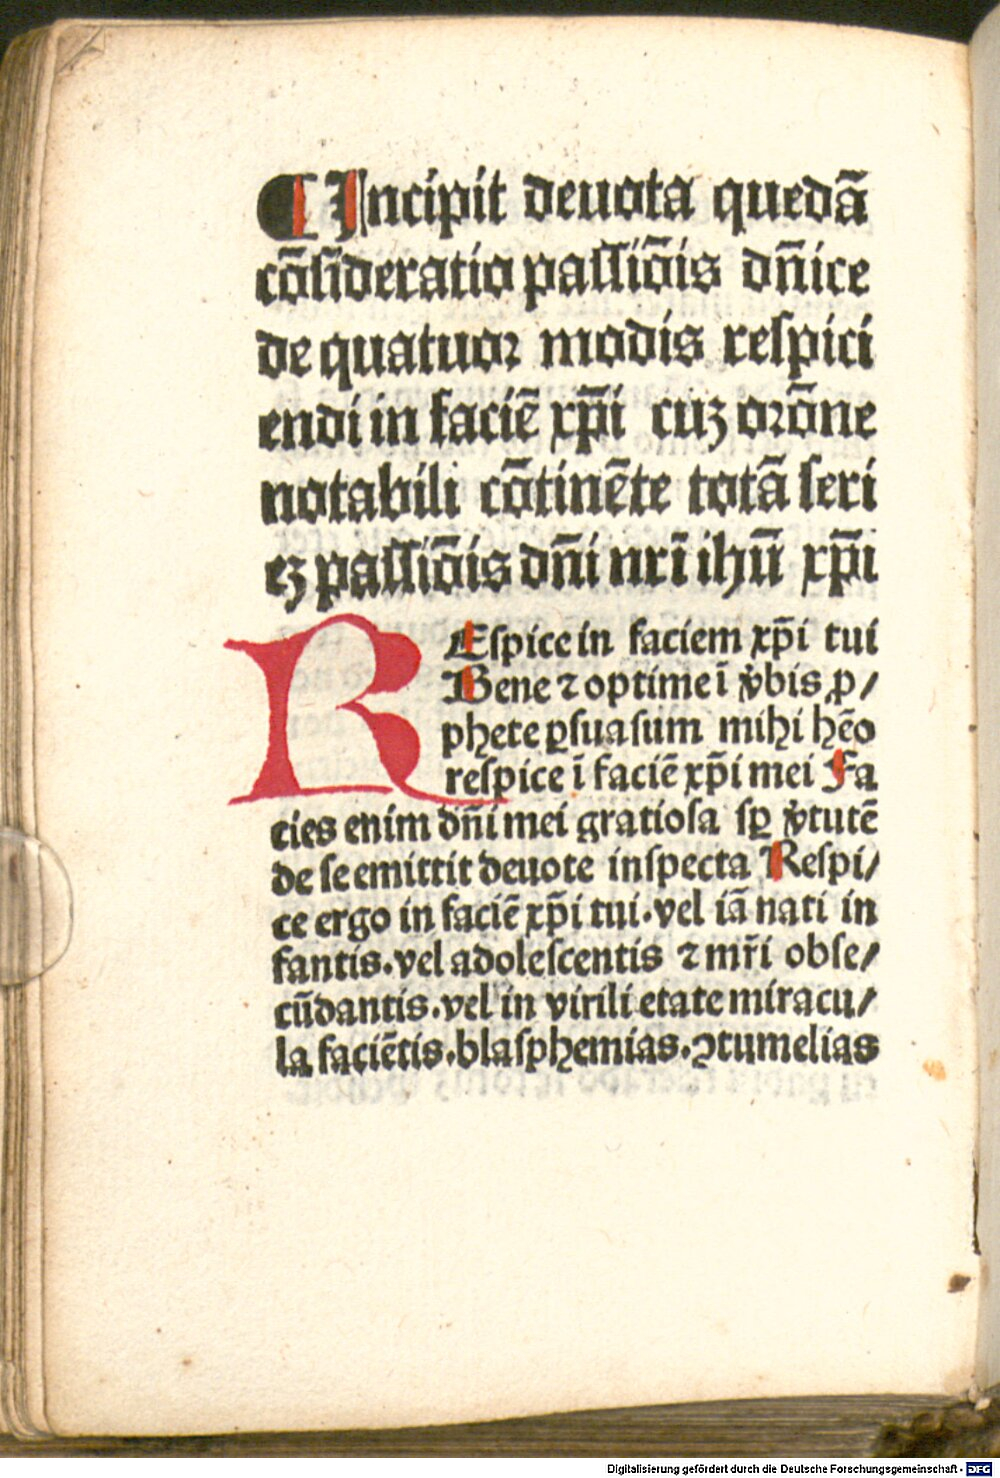 ¶ Incipit deuota quedã
cõſideratio paſſiõis dñice
de quatuoꝛ modis reſpici
endi in faciẽ xp̃i cuꝫ oꝛõne
notabili cõtinẽte totã ſeri
eꝫ paſſiõis dñi nr̃i ihũ xp̃i
REſpice in faciem xp̃i tui
Bene ⁊ optime ĩ v̾bis ꝓ/
phete ꝑſuaſum mihi hẽo
reſpice ĩ faciẽ xp̃i mei Fa
cies enim dñi mei gratioſa ſꝑ v̾tutẽ
de ſe emittit deuote inſpecta Reſpi/
ce ergo in faciẽ xp̃i tui·vel iã nati in
fantis·vel adoleſcentis ⁊ mr̃i obſe/
cũdantis·vel in virili etate miracu/
la faciẽtis·blaſphemias·ꝯtumelias
Digitalisierung gefördert durch die Deutsche Forschungsgemeinschaft - DFG